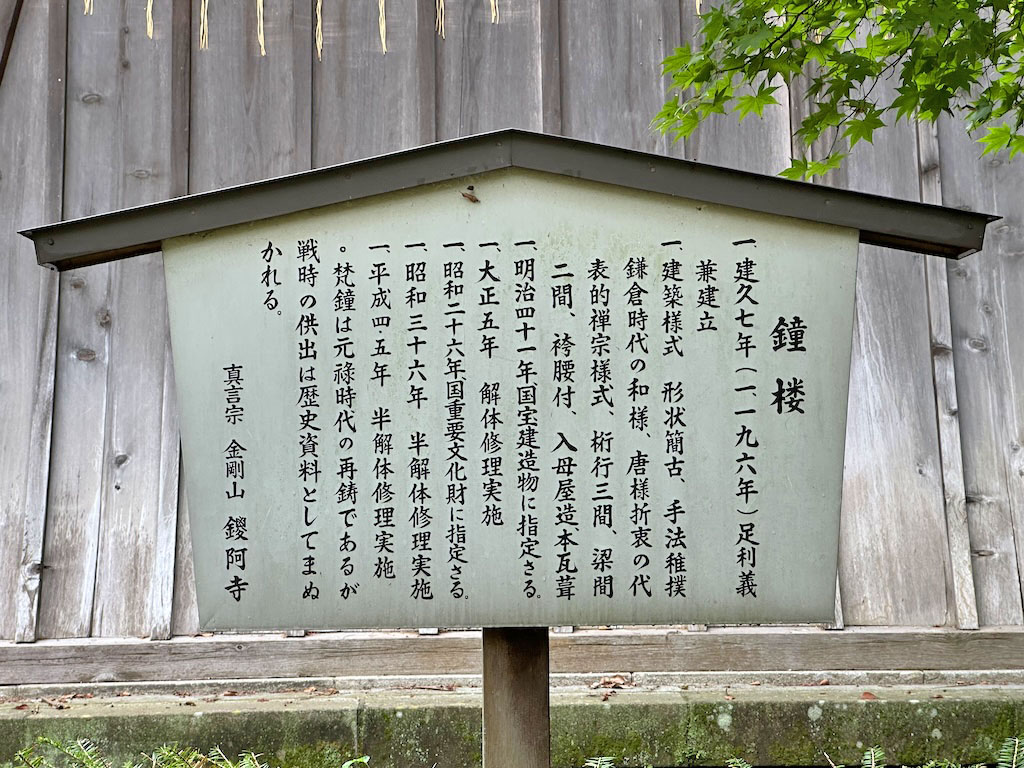 鐘楼
一、建久七年(一、一九六年)足利義
兼建立
一、建築様式 形状簡古、手法稚撲
鎌倉時代の和様、唐様折衷の代
表的禅宗様式、桁行三間、梁間
二間、袴腰付、入母屋造本瓦葺
一、明治四十一年国宝建造物に指定さる。
一、大正五年 解体修理実施
一、昭和二十六年国重要文化財に指定さる。
一、昭和三十六年 半解体修理実施
一、平成四・五年 半解体修理実施
。梵鐘は元祿時代の再鋳であるが
戦時の供出は歴史資料としてまぬ
かれる。
真言宗 金剛山 鑁阿寺